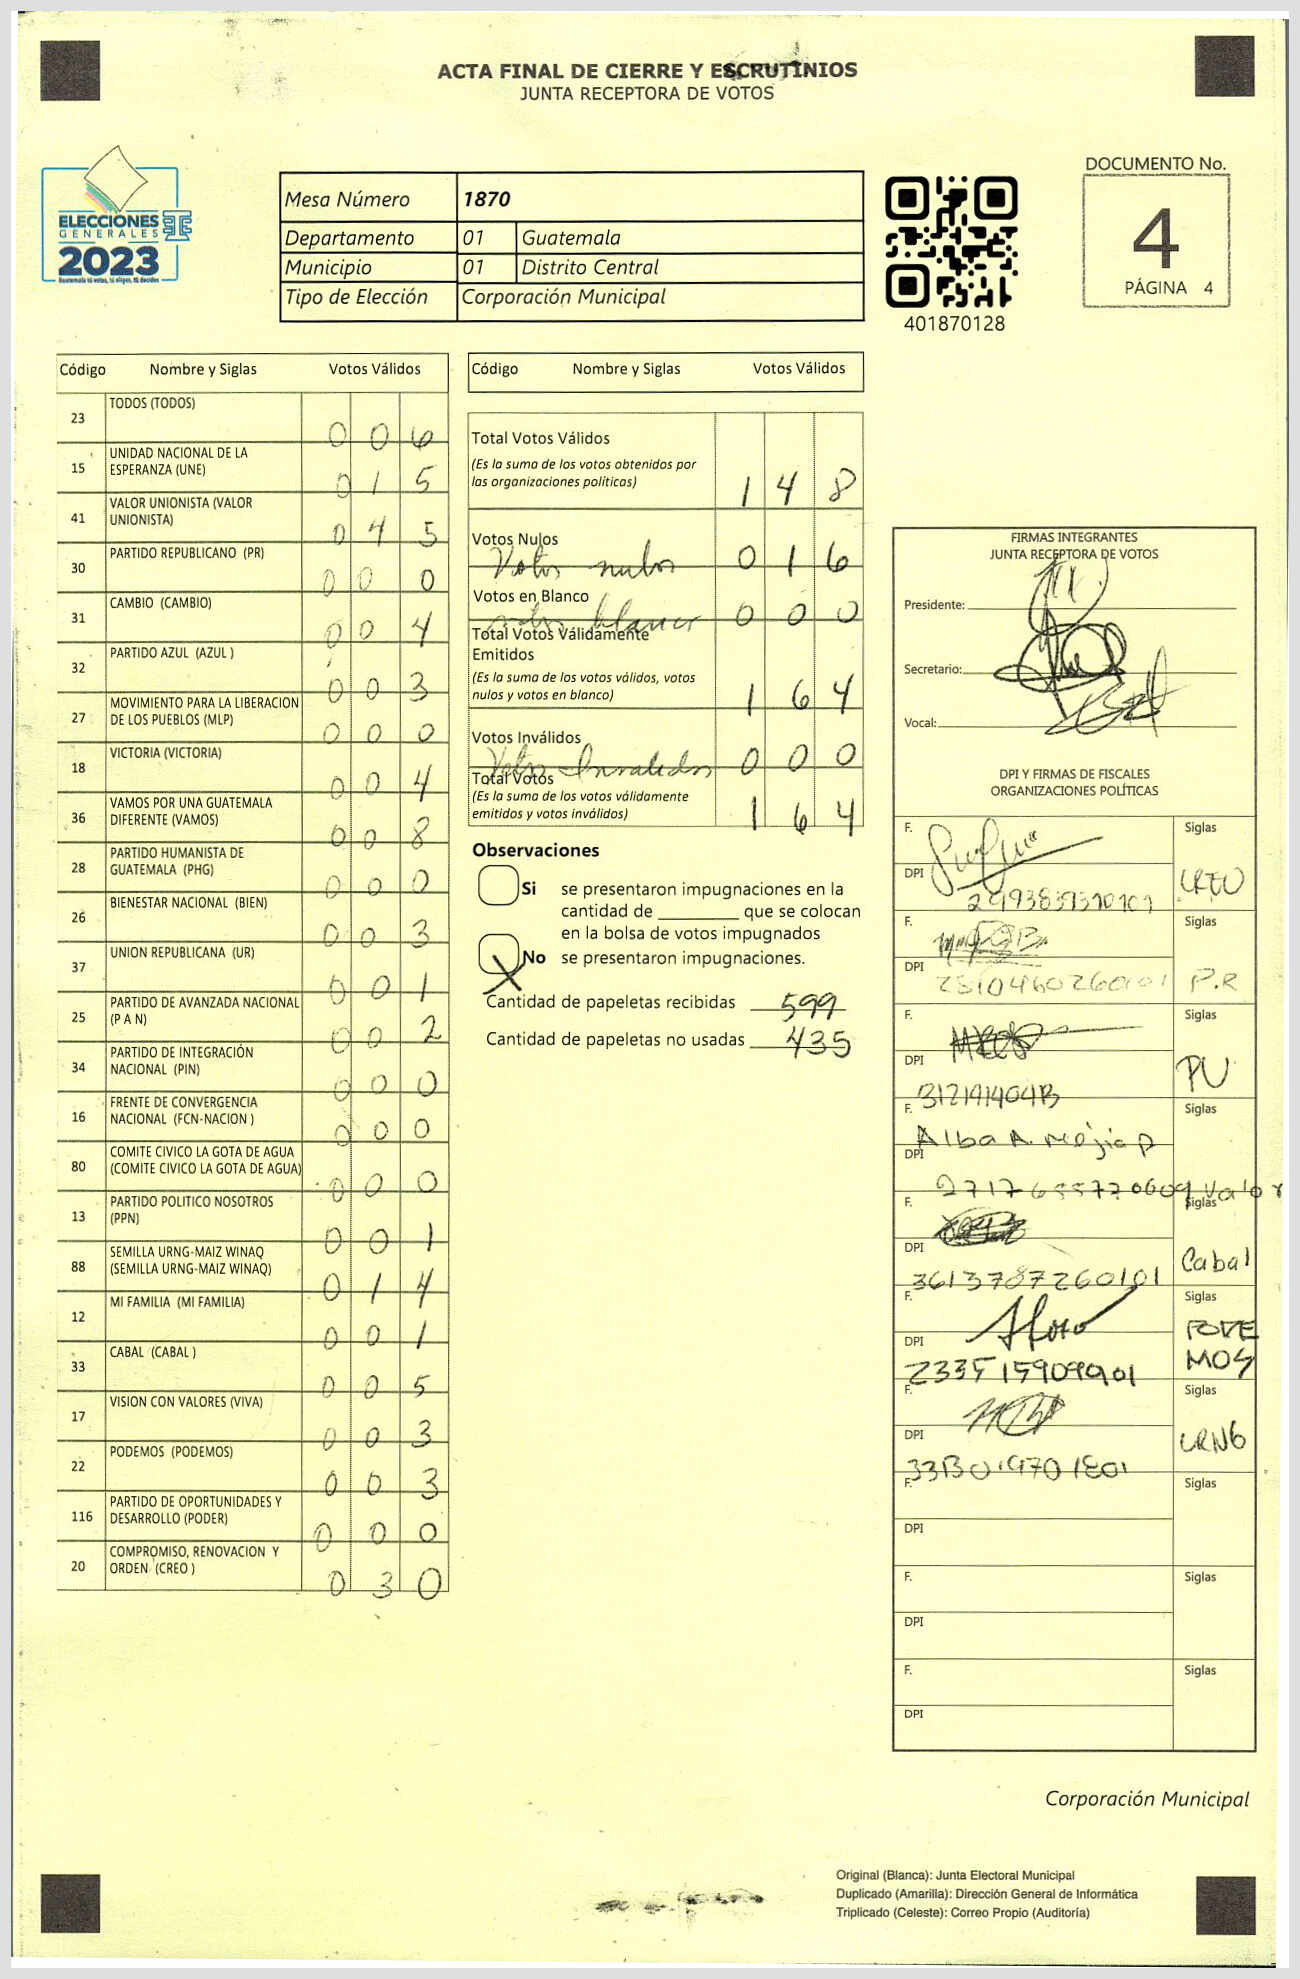 ACTA FINAL DE CIERRE Y ESCRUTINIOS
JUNTA RECEPTORA DE VOTOS
ELECCIONES
GENERALES
2023
Mesa Número 1870
Departamento 01 Guatemala
Municipio 01 Distrito Central
Tipo de Elección Corporación Municipal
401870128
DOCUMENTO No.
4
PÁGINA 4
Código Nombre y Siglas Votos Válidos
23 TODOS (TODOS) 0 0 6
15 UNIDAD NACIONAL DE LA
ESPERANZA (UNE) 0 1 5
41 VALOR UNIONISTA (VALOR
UNIONISTA) 0 4 5
30 PARTIDO REPUBLICANO (PR) 0 0 0
31 CAMBIO (CAMBIO) 0 0 4
32 PARTIDO AZUL (AZUL ) 0 0 3
27 MOVIMIENTO PARA LA LIBERACION
DE LOS PUEBLOS (MLP) 0 0 0
18 VICTORIA (VICTORIA) 0 0 4
36 VAMOS POR UNA GUATEMALA
DIFERENTE (VAMOS) 0 0 8
28 PARTIDO HUMANISTA DE
GUATEMALA (PHG) 0 0 0
26 BIENESTAR NACIONAL (BIEN) 0 0 3
37 UNION REPUBLICANA (UR) 0 0 1
25 PARTIDO DE AVANZADA NACIONAL
(P A N) 0 0 2
34 PARTIDO DE INTEGRACIÓN
NACIONAL (PIN) 0 0 0
16 FRENTE DE CONVERGENCIA
NACIONAL (FCN-NACION ) 0 0 0
80 COMITE CIVICO LA GOTA DE AGUA
(COMITE CIVICO LA GOTA DE AGUA) 0 0 0
13 PARTIDO POLITICO NOSOTROS
(PPN) 0 0 1
88 SEMILLA URNG-MAIZ WINAQ
(SEMILLA URNG-MAIZ WINAQ) 0 1 4
12 MI FAMILIA (MI FAMILIA) 0 0 1
33 CABAL (CABAL ) 0 0 5
17 VISION CON VALORES (VIVA) 0 0 3
22 PODEMOS (PODEMOS) 0 0 3
116 PARTIDO DE OPORTUNIDADES Y
DESARROLLO (PODER) 0 0 0
20 COMPROMISO, RENOVACION Y
ORDEN (CREO ) 0 3 0
Código Nombre y Siglas Votos Válidos
Total Votos Válidos
(Es la suma de los votos obtenidos por
las organizaciones políticas) 1 4 8
Votos Nulos
Votos nulos 0 1 6
Votos en Blanco
votos blanco 0 0 0
Total Votos Válidamente
Emitidos
(Es la suma de los votos válidos, votos
nulos y votos en blanco) 1 6 4
Votos Inválidos
Votos Invalidos 0 0 0
Total Votos
(Es la suma de los votos válidamente
emitidos y votos inválidos) 1 6 4
Observaciones
Si se presentaron impugnaciones en la
cantidad de ________ que se colocan
en la bolsa de votos impugnados
X No se presentaron impugnaciones.
Cantidad de papeletas recibidas 599
Cantidad de papeletas no usadas 435
FIRMAS INTEGRANTES
JUNTA RECEPTORA DE VOTOS
Presidente:
Secretario:
Vocal:
DPI Y FIRMAS DE FISCALES
ORGANIZACIONES POLÍTICAS
F. Siglas
DPI
F. Siglas
DPI P.R
F. Siglas
DPI PU
F. Siglas
Alba A. Mejia P
DPI
Valor
F. Siglas
DPI Cabal
3613787260101
F. Siglas
DPI PODE
MOS
F. Siglas
DPI
F. Siglas
DPI
F. Siglas
DPI
F. Siglas
DPI
Corporación Municipal
Original (Blanca): Junta Electoral Municipal
Duplicado (Amarilla): Dirección General de Informática
Triplicado (Celeste): Correo Propio (Auditoría)